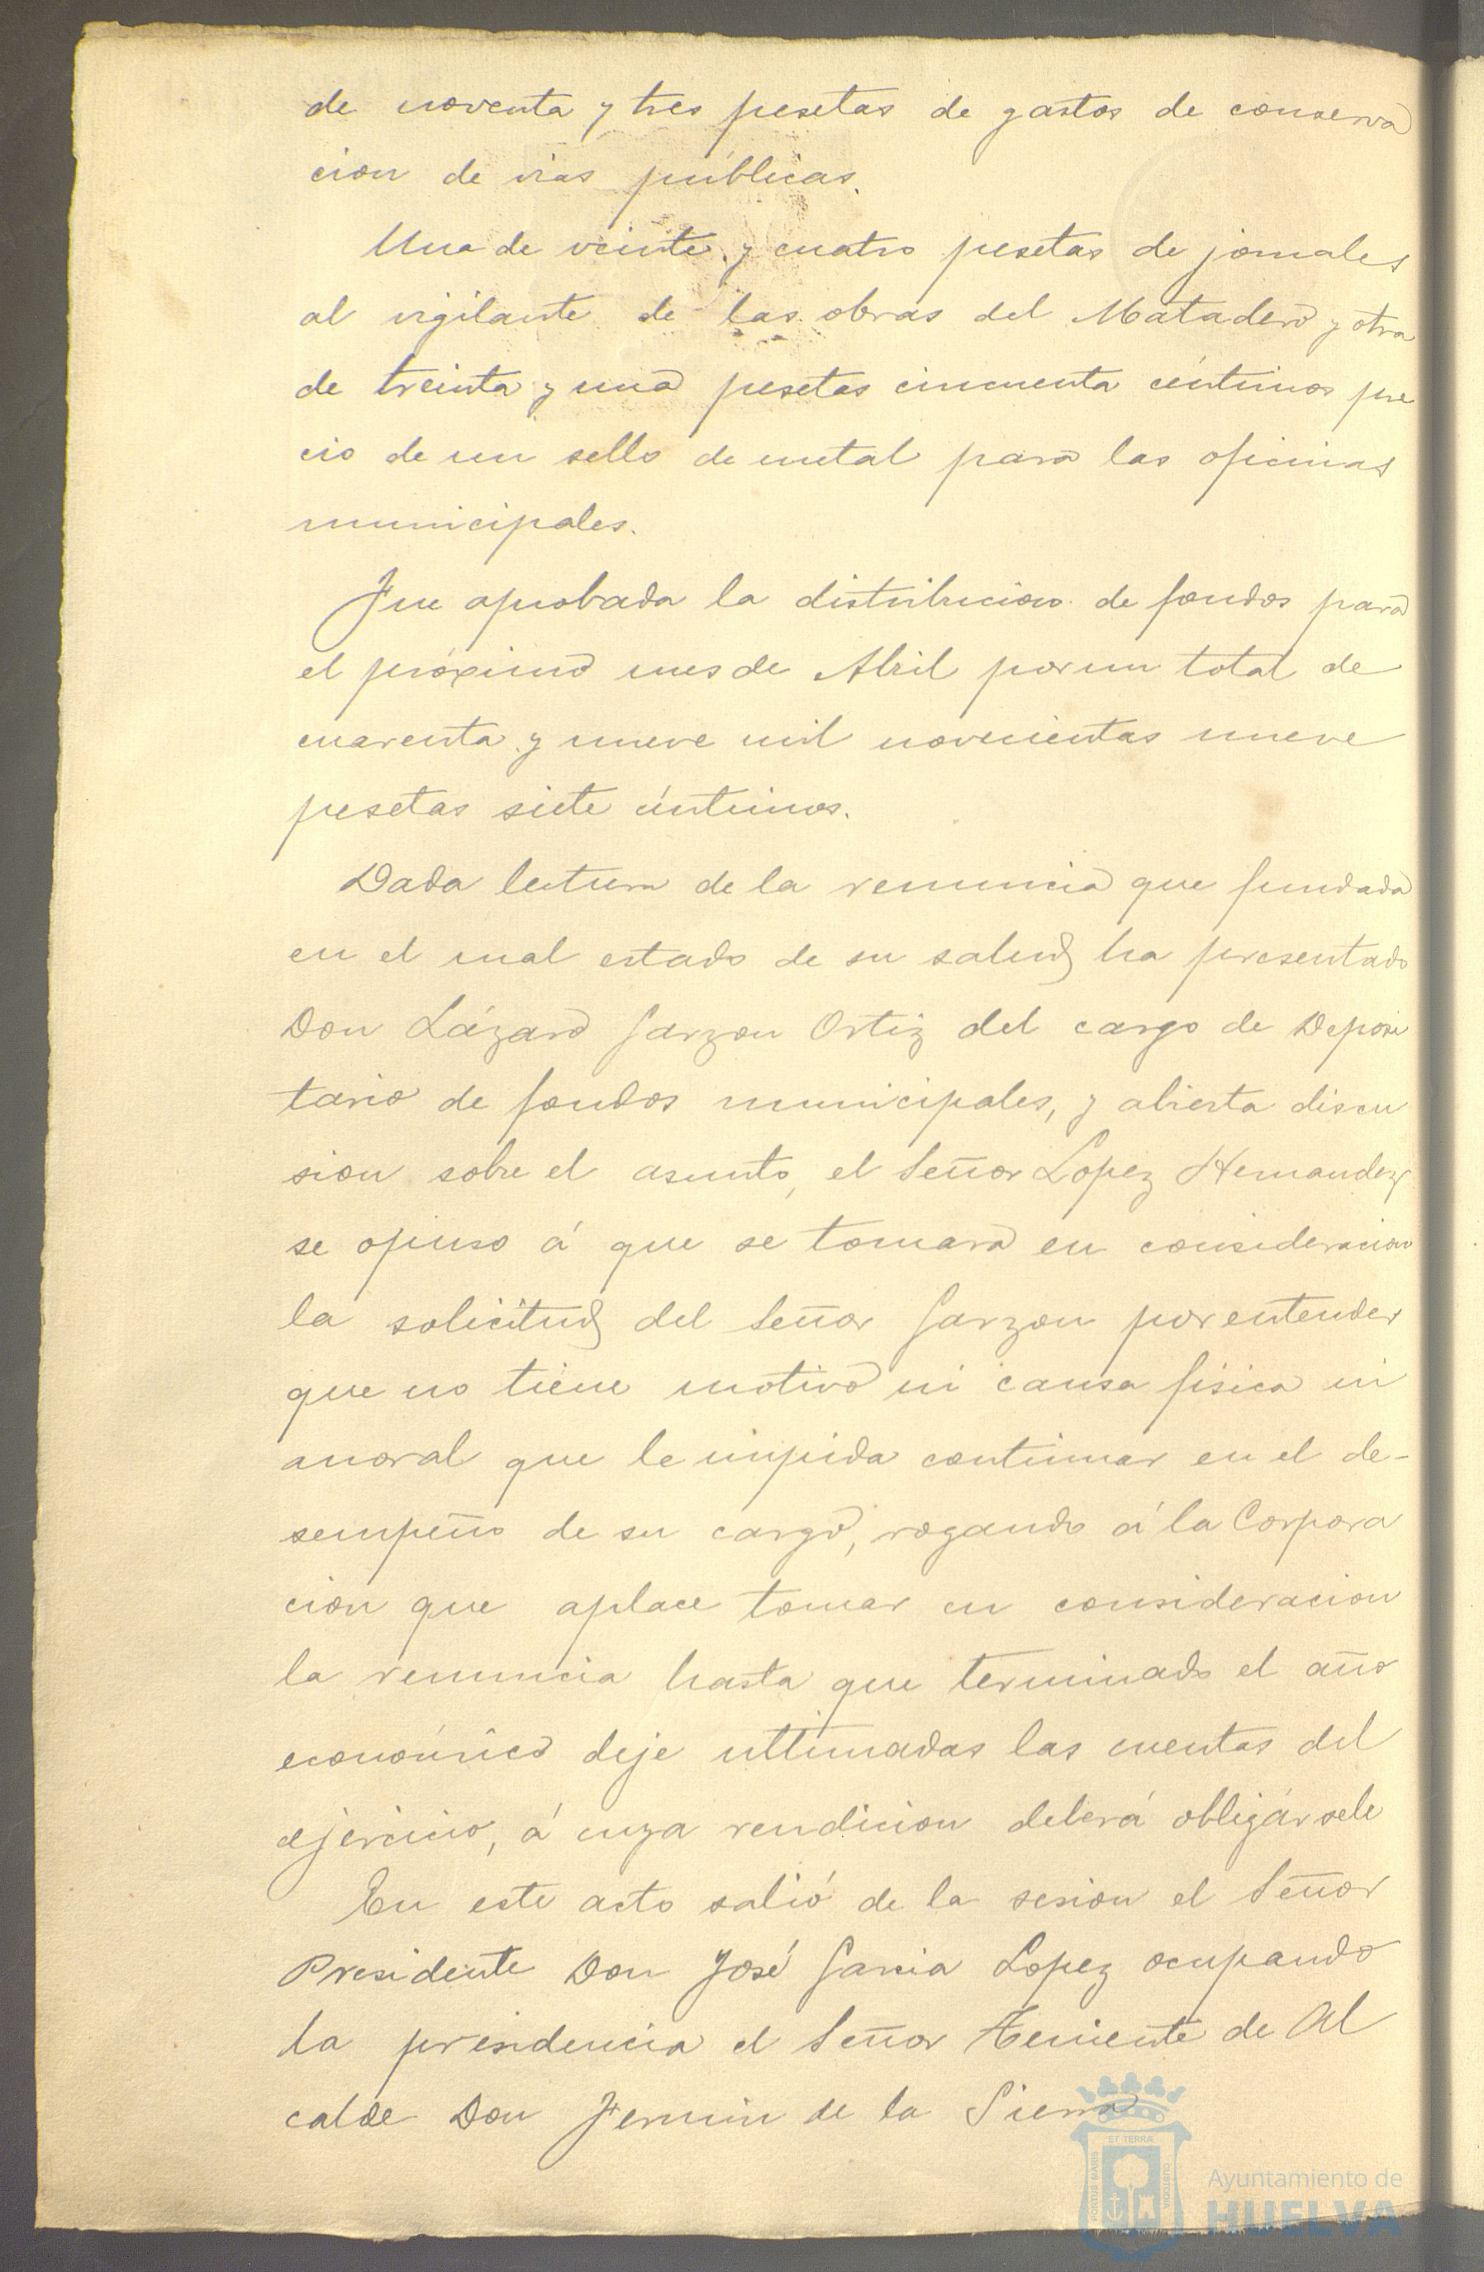 de noventa y tres pesetas de gastos de conserva
cion de vias públicas.
Una de veinte y cuatro pesetas de jornales
al vigilante de las obras del Matadero y otra
de treinta y una pesetas cincuenta céntimos pre
cio de un sello de metal para las oficinas
municipales.
Fue aprobada la distribucion de fondos para
el próximo mes de Abril por un total de
cuarenta y nueve mil novecientas nueve
pesetas siete céntimos.
Dada lectura de la renuncia que fundada
en el mal estado de su salud ha presentado
Don Lázaro Garzon Ortiz del cargo de Deposi
tario de fondos municipales, y abierta discu
sion sobre el asunto, el Señor Lopez Hernandez
se opuso á que se tomara en consideracion
la solicitud del Señor Garzon por entender
que no tiene motivo ni causa fisica ni
moral que le impida continuar en el de-
sempeño de su cargo, rogando á la Corpora
cion que aplace tomar en consideracion
la renuncia hasta que terminado el año
económico deje ultimadas las cuentas del
ejercicio, á cuya rendicion deberá obligársele
En este acto salió de la sesion el Señor
Presidente Don José Garcia Lopez ocupando
la presidencia el Señor Teniente de Al
calde Don Fermin de la Sierra
ET TERRÆ
PORTUS MARIS
CUSTODIA
Ayuntamiento de
HUELVA